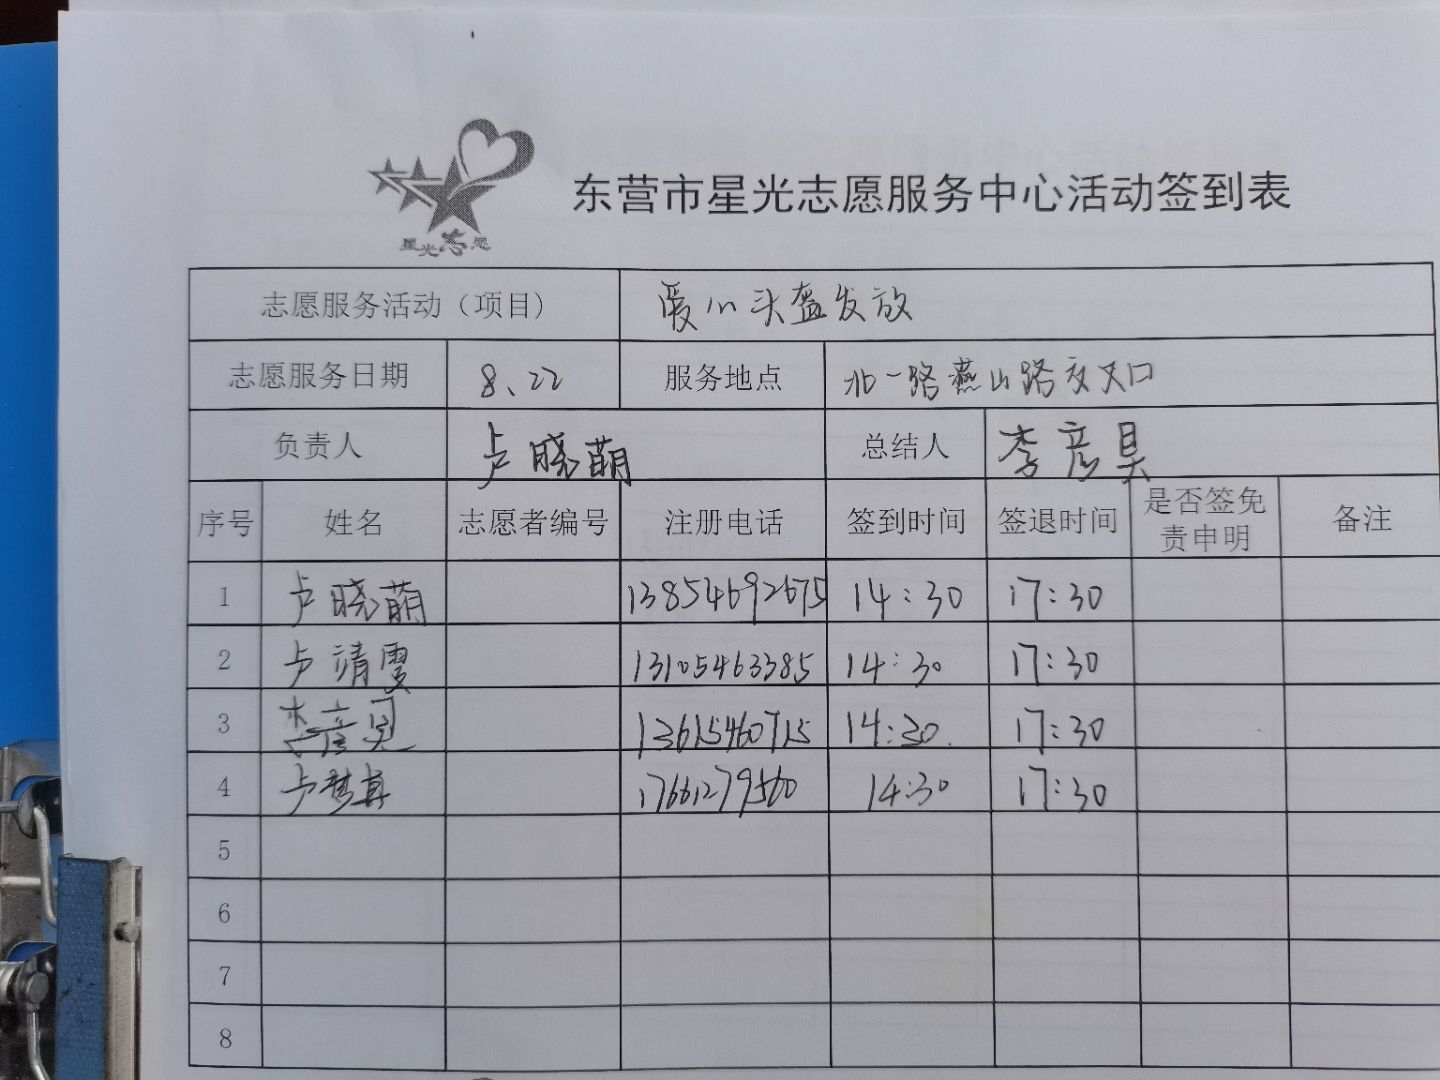 星光志愿
东营市星光志愿服务中心活动签到表
志愿服务活动（项目） 爱心头盔发放
志愿服务日期 8、22 服务地点 北一路燕山路交叉口
负责人 卢晓萌 总结人 李彦昊
序号 姓名 志愿者编号 注册电话 签到时间 签退时间 是否签免责申明 备注
1 卢晓萌 13854692675 14:30 17:30
2 卢靖雯 13105463385 14:30 17:30
3 李彦昊 13615460715 14:30 17:30
4 卢梦真 17661279560 14:30 17:30
5
6
7
8